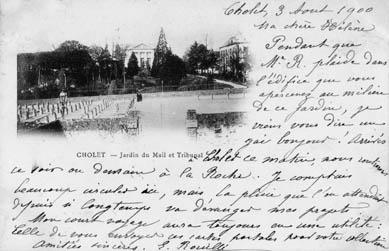 Cholet, 3 Aout 1900
Ma chère Hélène
Pendant que
Mr R. plaide dans
l'édifice que vous
apercevez au milieu
de ce jardin, je
viens vous dire un
gai bonjour. Arrivés
CHOLET — Jardin du Mail et Tribunal
à Cholet ce matin, nous
ce soir ou demain à la Roche. Je comptais
beaucoup circuler ici, mais la pluie que l'on attendait
depuis si longtemps va déranger mes projets
Mon court voyage aura toujours eu une utilité
Celle de vous envoyer ces cartes postales pour votre
Amitiés sincères.